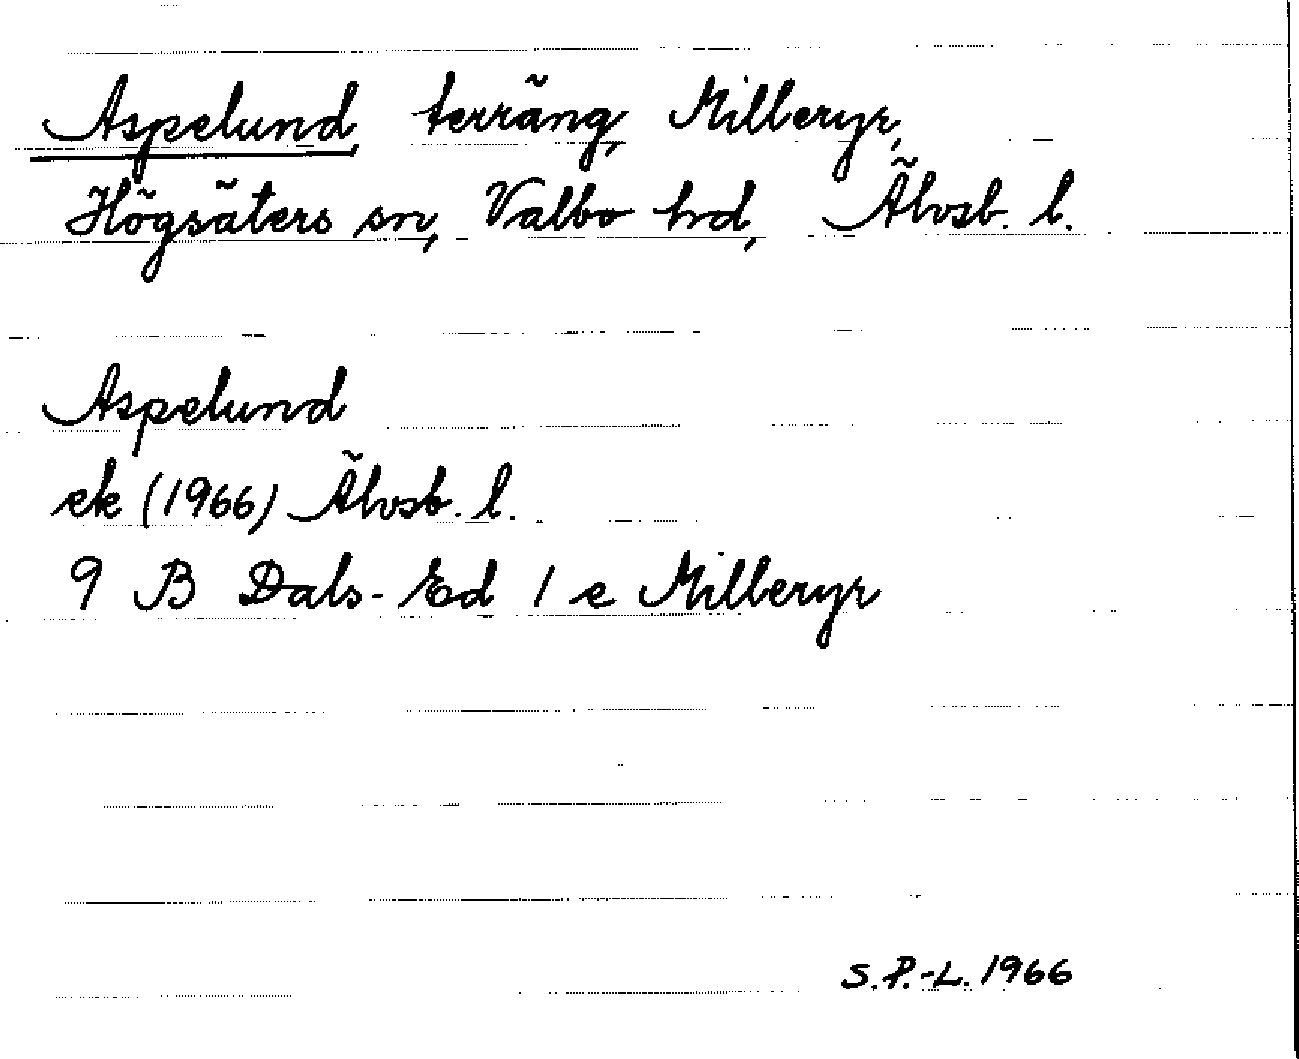 Aspelund, terräng, Milleryr,
Högsäters sn, Valbo hd, Älvsb. l.
Aspelund
ek (1966) Älvsb. l.
9 B Dals-Ed 1 e Milleryr
S.P.-L. 1966